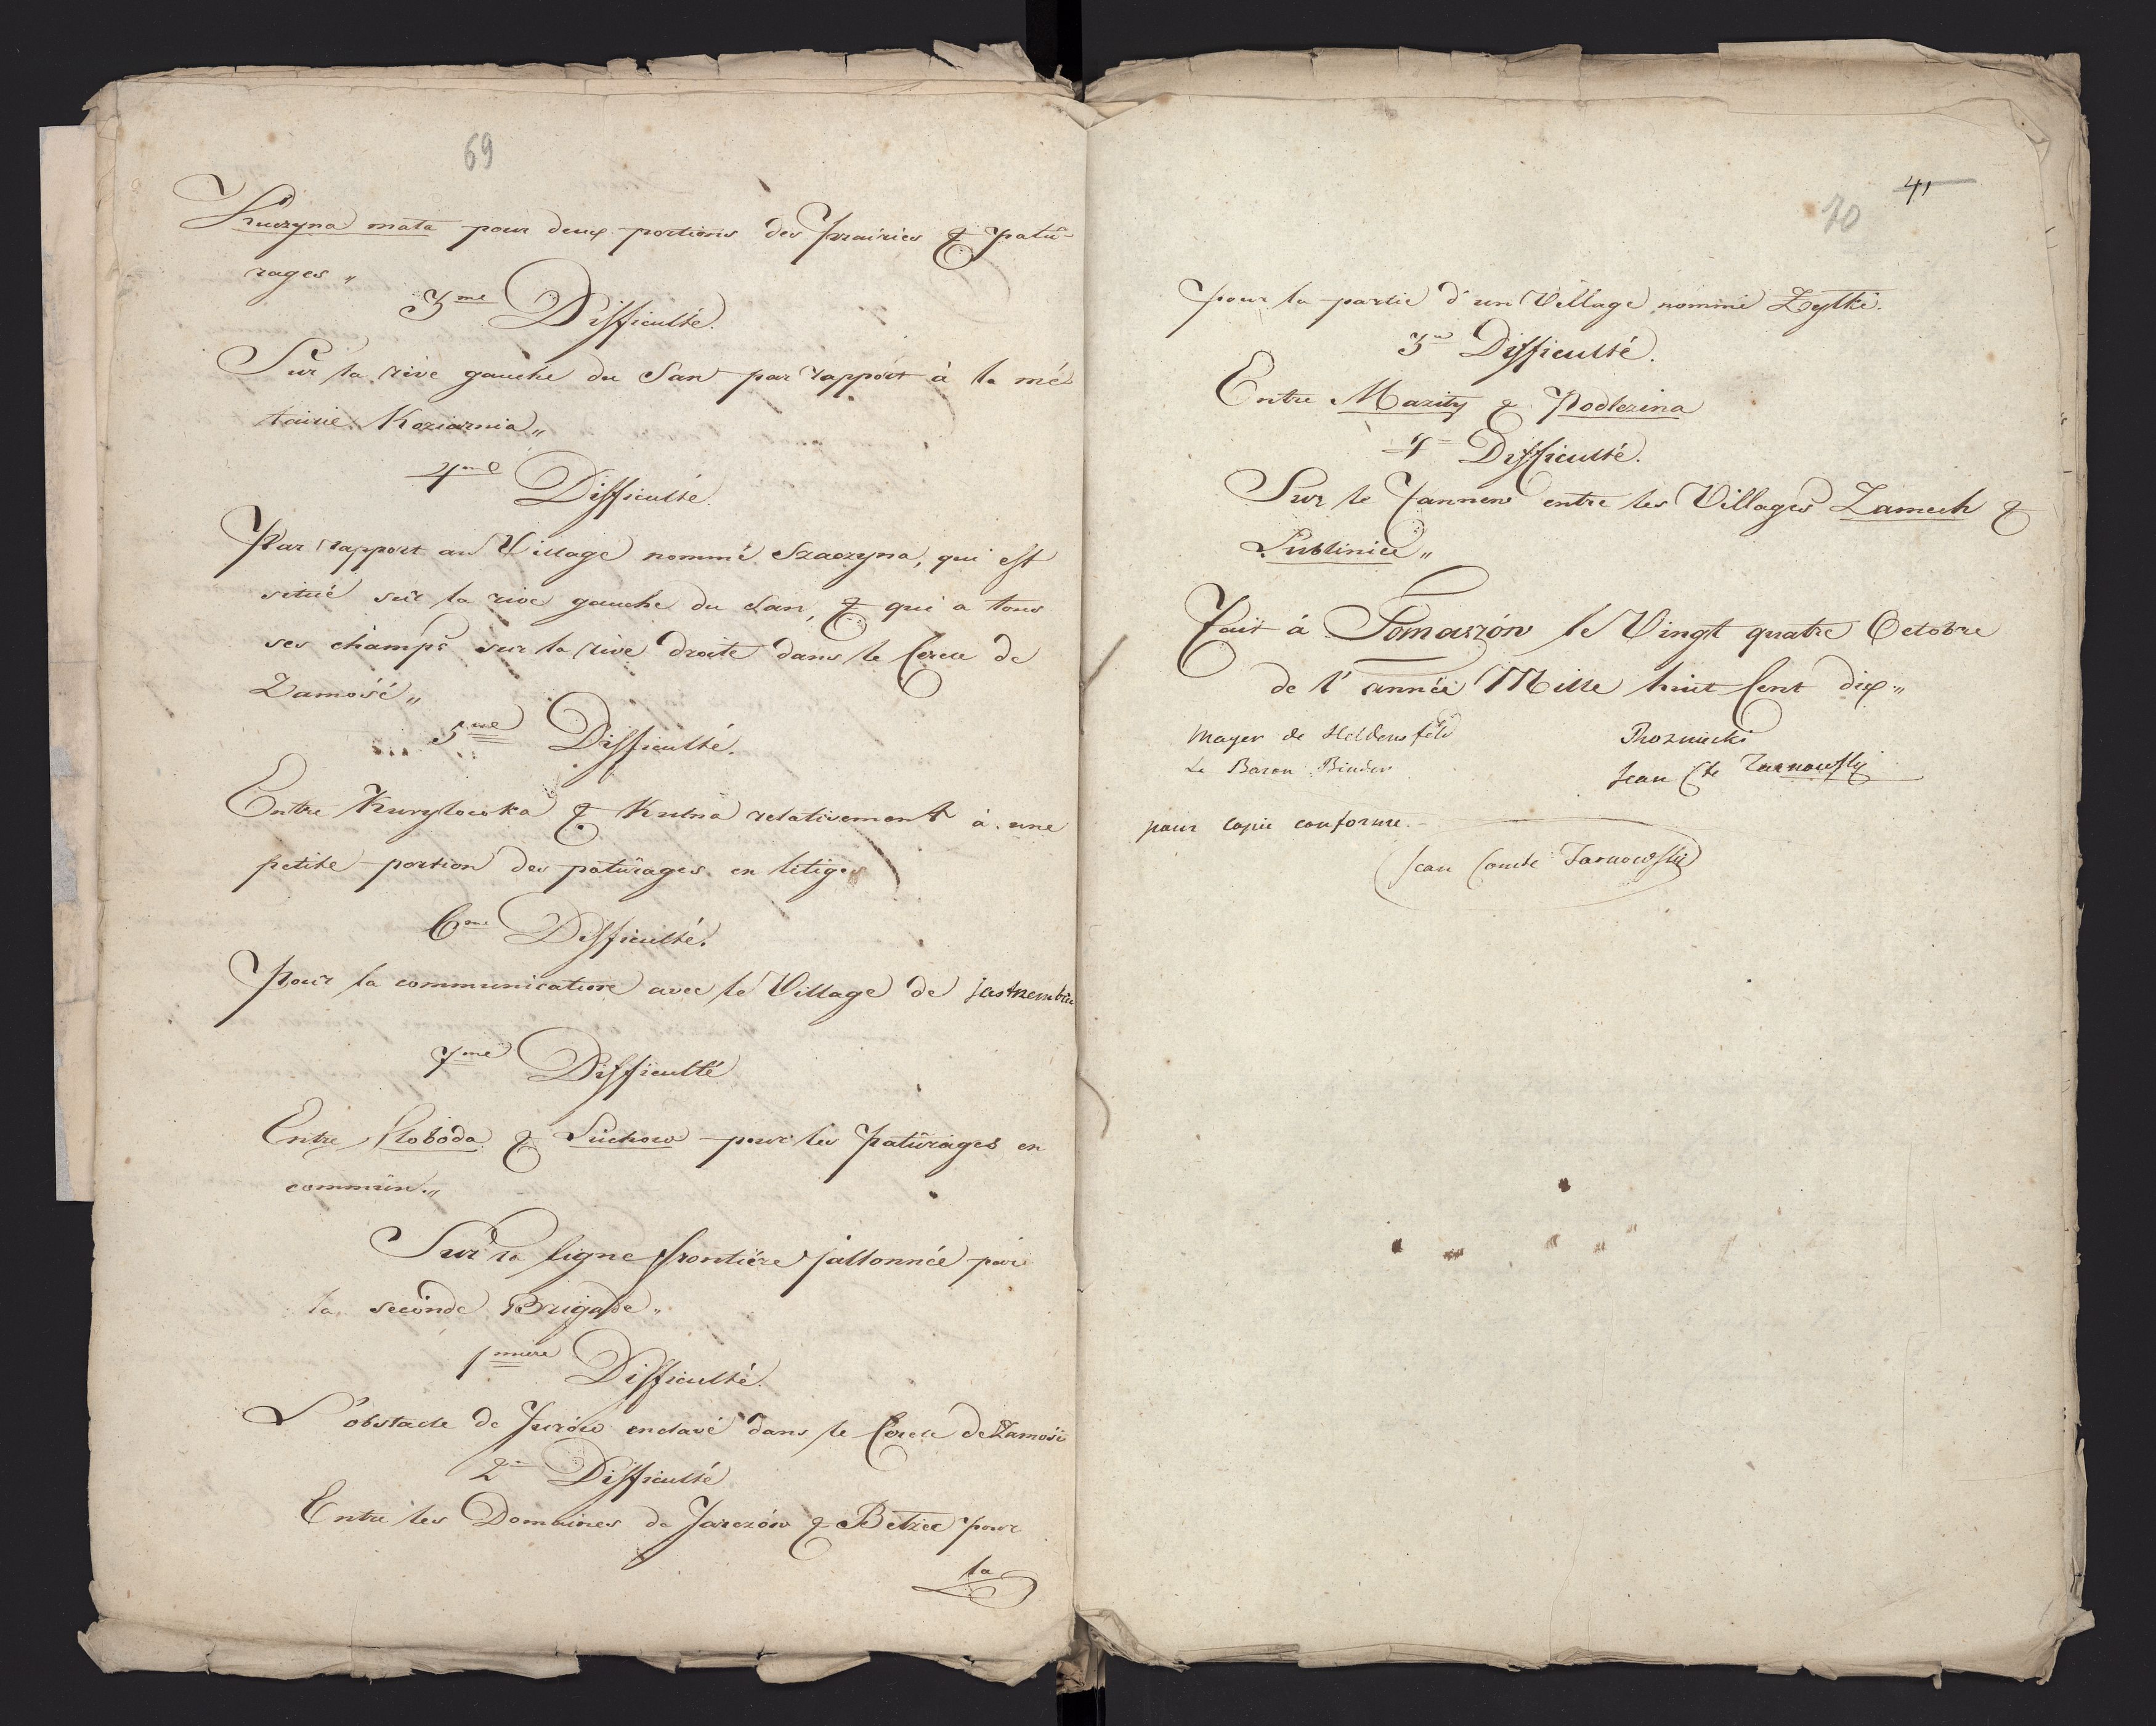 69
Kruczyna mała pour deux portions des Prairies & patû-
rages „
3me Difficulté.
Sur la rive gauche du San par rapport à la mé-
tairie Koziarnia „
4me Difficulté.
Par rapport au Village nommé Szaczyna, qui est
situé sur la rive gauche du San, & qui a tous
ses champs sur la rive droite dans le Cercle de
Zamość „
5me Difficulté.
Entre Kuryłowka & Kulna relativement à une
petite portion des patûrages en litiges
6me Difficulté.
Pour la communication avec le Village de
7me Difficulté
Entre Sloboda & Suchow pour les patûrages en
commun. „
Sur la ligne frontière jallonnée par
la seconde Brigade „
1mière Difficulté.
L'obstacle de Jurów enclavé dans le Cercle de Zamość
2e Difficulté
Entre les Domaines de Jarczów & Bełzec pour
la
41
70
pour la partie d'un Village nommé Zylki.
3e Difficulté.
Entre Maziły & Podlezina
4e Difficulté.
Sur le Tannew entre les Villages Zamech &
Lubliniec „
Fait à Tomaszów le Vingt quatre Octobre
de l'année Mille huit Cent dix „
Mayer de Heldensfeld Rozniecki
Le Baron Binder Jean Cte Tarnowski
pour Copie conforme.
Jean Comte Tarnowski